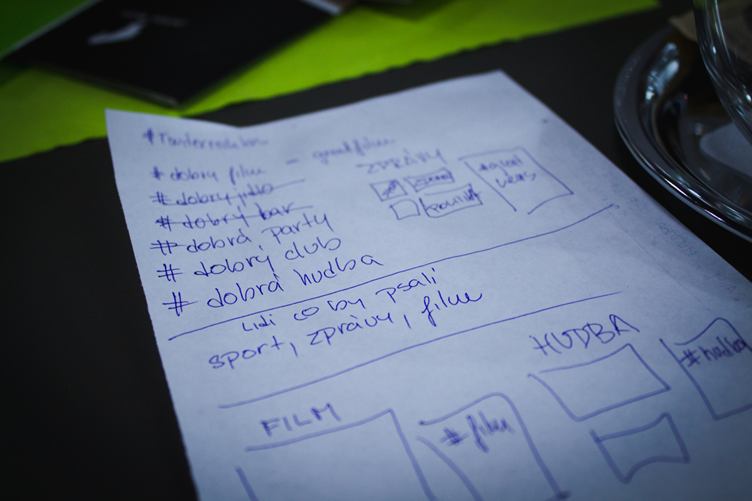 #dobrý film - goodfilm
ZPRÁVY
#dobrý bar
#dobrá party
#dobrý club
#dobrá hudba
Lidi co by psali
sport, zprávy, film
HUDBA
#hudba
FILM
#film